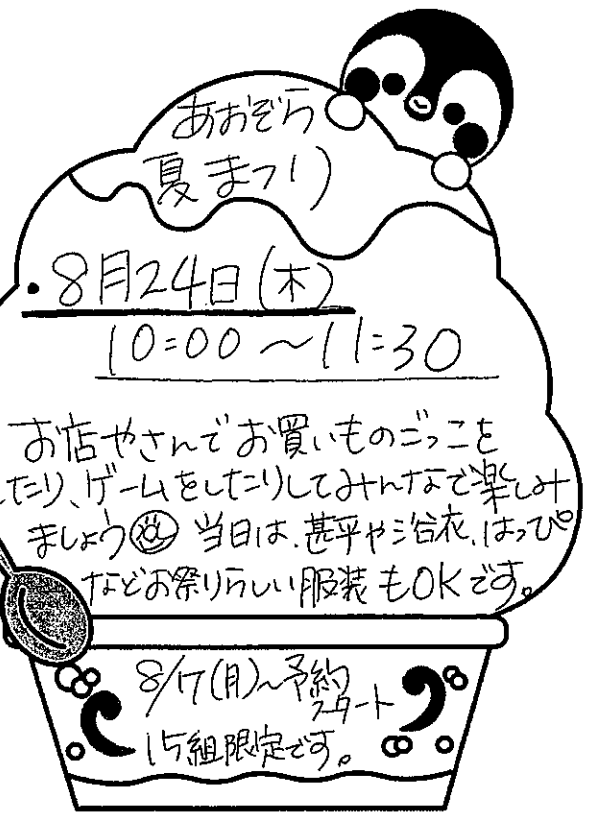 あおぞら
夏まつり
・8月24日(木)
10:00～11:30
お店やさんでお買いものごっこを
したり、ゲームをしたりしてみんなで楽しみ
ましょう 当日は、甚平や浴衣、はっぴ
などお祭りらしい服装もOKです。
8/17(月)～予約
スタート
15組限定です。